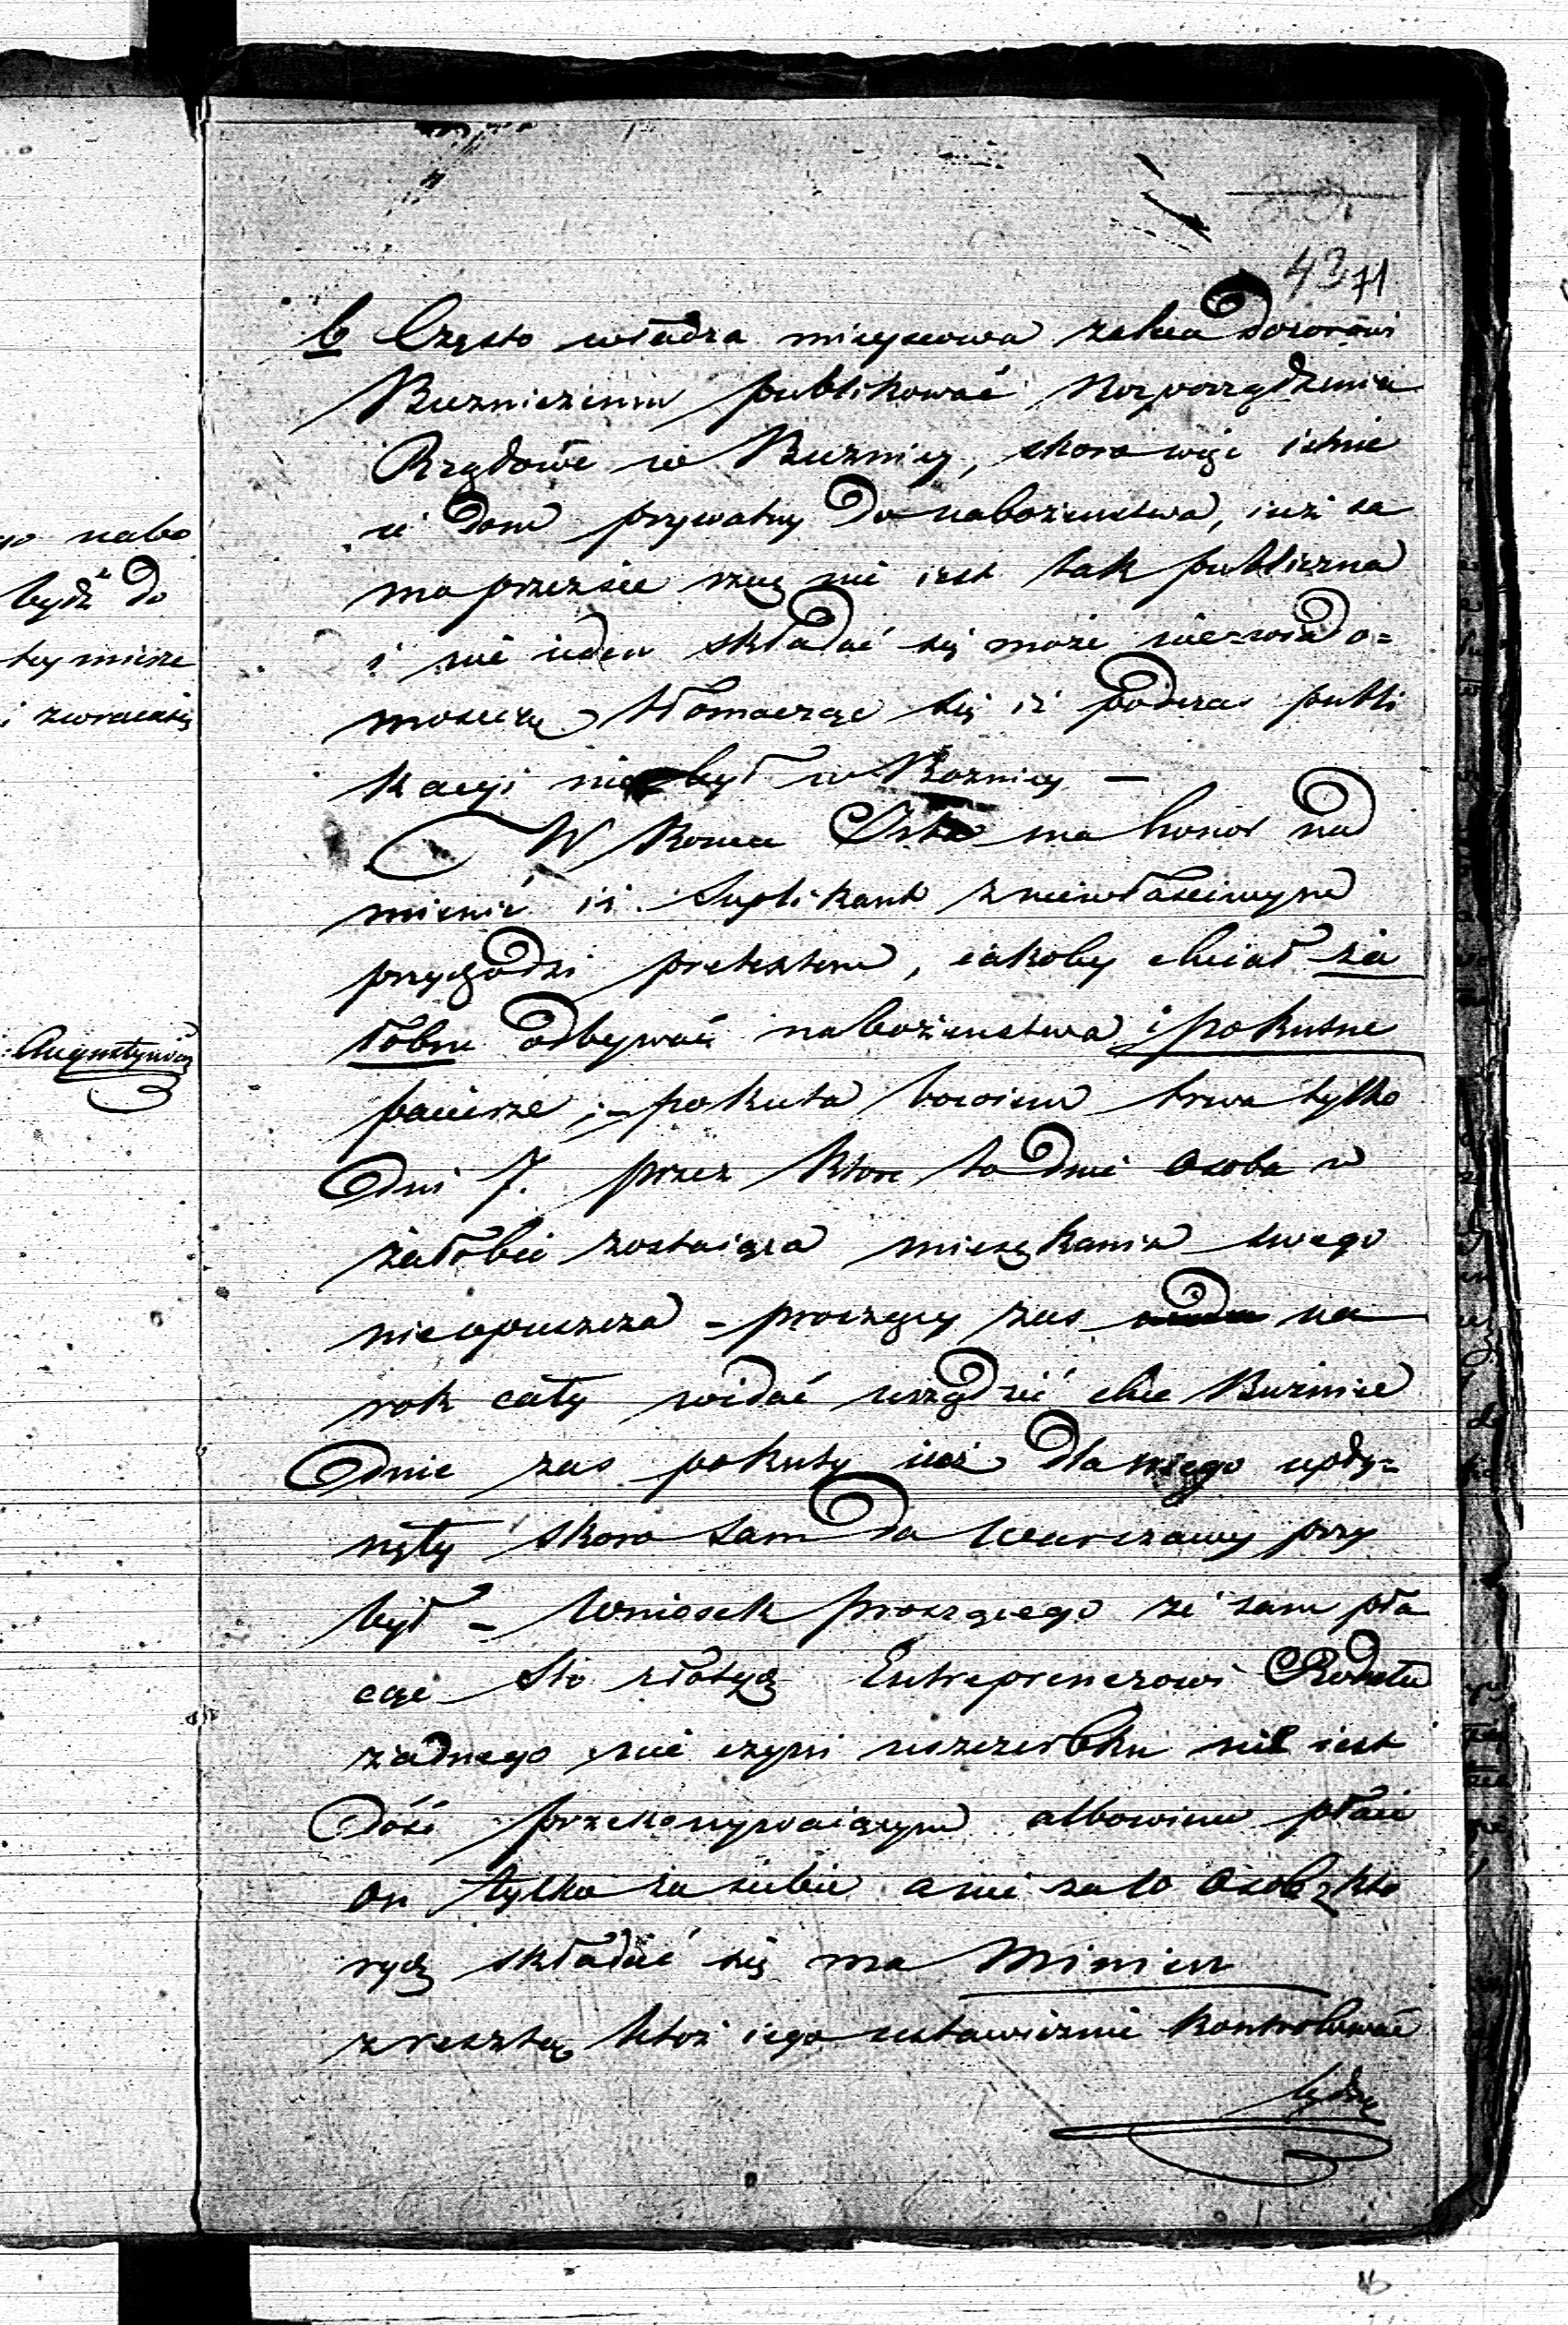 43 71
b Często władza mieyscowa zaleca dozorowi
Buzniczemu publikować Rozporządzenia
Rządowe w Buznicy, skoro więc istnie
ie dom prywatny do nabożenstwa, iuż sa
ma przez się rzecz nie iest tak publiczna
i nie ieden składać się może nie-wiado=
moscią tłomacząc się iż podczas publi
kacyi nie był w Boznicy —
W Koncu ma honor nad
mienić iż Suplikant z niewłasciwym
przychodzi pretextem, iakoby chciał ża
łobne odbywać nabożenstwa i pokutne
pacierze; – pokuta bowiem trwa tylko
dni 7. przez ktore to dnie osoba w
żałobie zostaiąca mieszkania swego
nieopuszcza – proszący zas na
rok cały widać urządzić chce Buznice
dnie zas pokuty iuż dla niego upły=
nęły skoro sam do Warszawy przy
był – Wniosek proszącego że sam pła
cąc Sto złotych Entreprenerowi Rodatu
żadnego nie czyni uszczerbku nie iest
dość przekonywaiącym albowiem płaci
on tylko za siebie a nie za 10 osob z kto
rych składać się ma Minien
zresztą ktoż iego ustawicznie kontrolować
będzie
go nabo
bydź do
tey mierze
i zwracaią
Augustynowicz